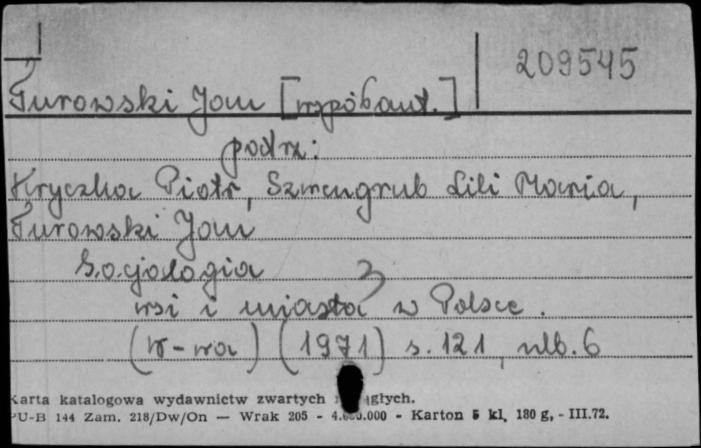 209545
Turowski Jan [współaut.]
patrz:
Kryczka Piotr, Szwengrub Lili Maria,
Turowski Jan
Socjologia
wsi i miasta w Polsce.
(W-wa) (1971) s. 121, nlb. 6
Karta katalogowa wydawnictw zwartych i ciągłych.
PU-B 144 Zam. 218/Dw/On — Wrak 205 - .000 - Karton 5 kl, 180 g, - III.72.